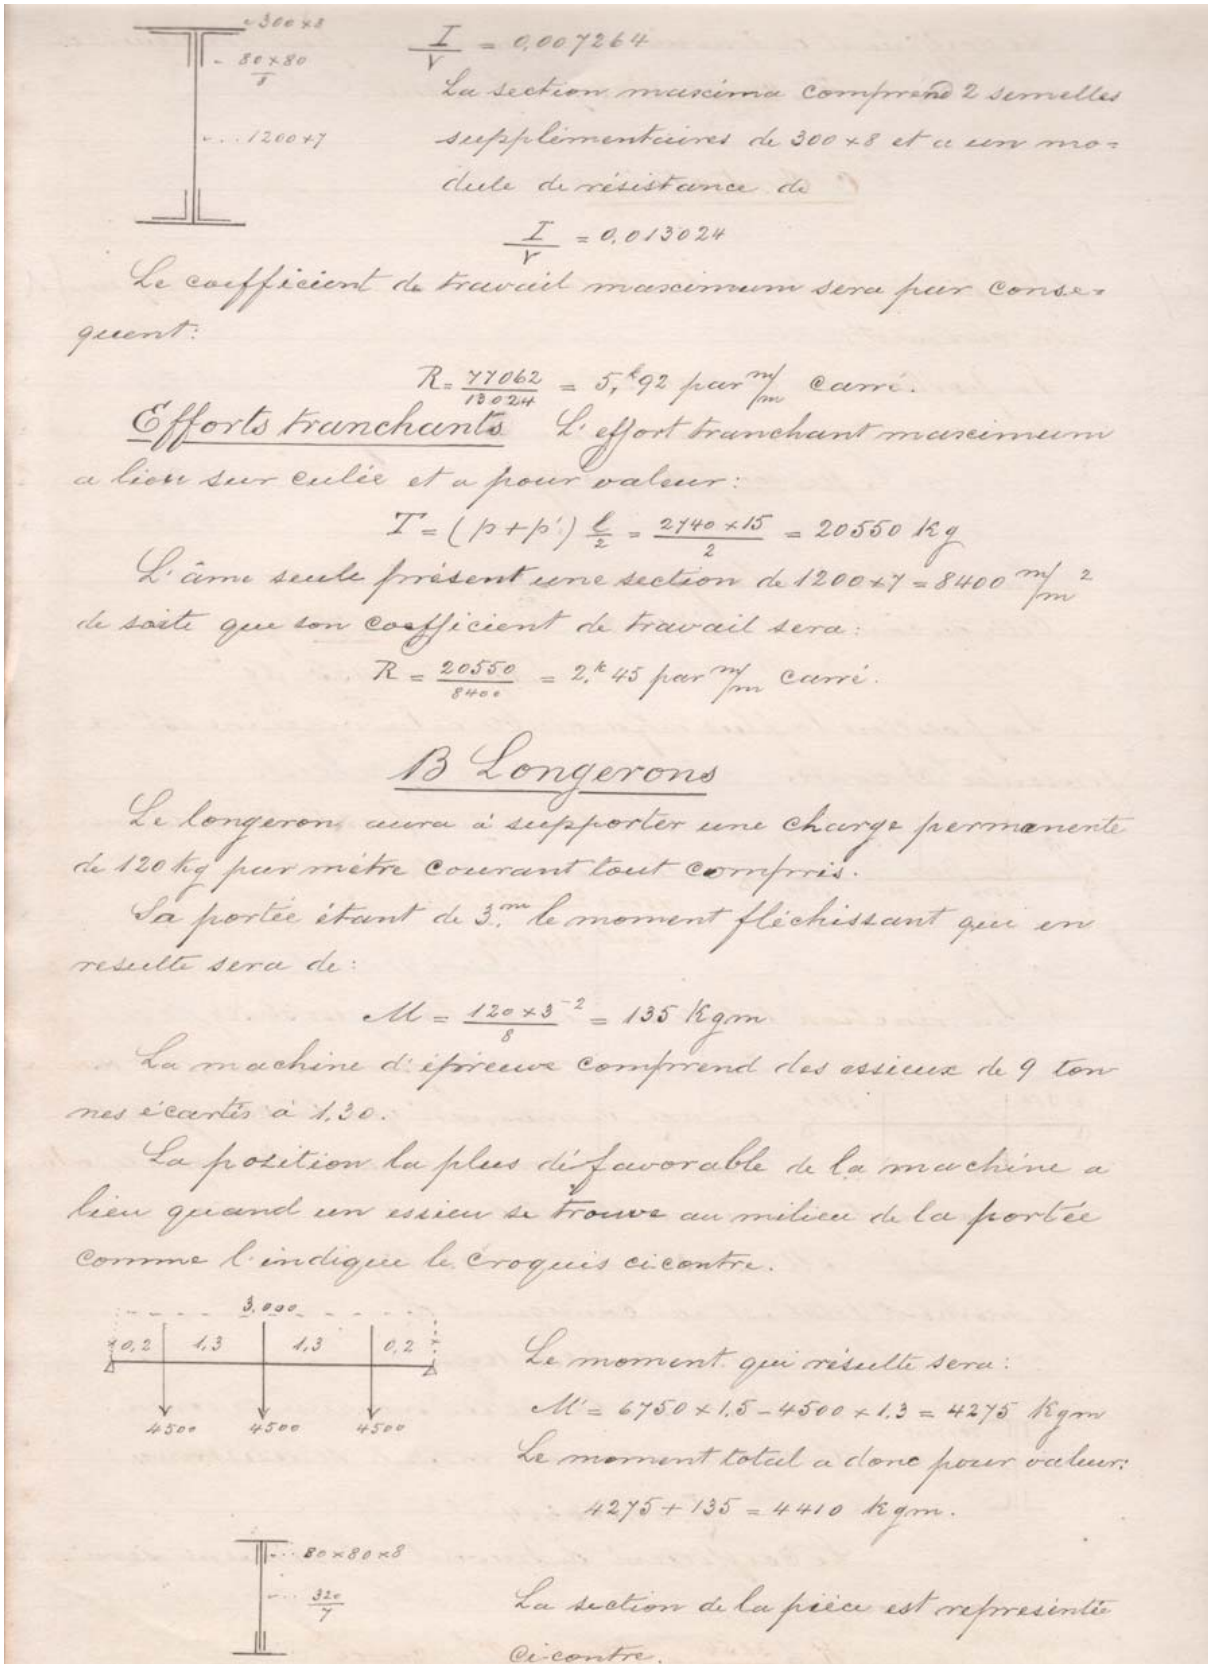 300×8
80×80
8
1200×7
I/V = 0,007264
La section maxima comprend 2 semelles
supplémentaires de 300×8 et a un mo=
dule de résistance de
I/V = 0,013024
Le coefficient de travail maximum sera par conse=
quent:
R = 77062/13024 = 5,k92 par m/m carré.
Efforts tranchants L'effort tranchant maximum
a lieu sur culée et a pour valeur:
T = (p+p') l/2 = 2740×15/2 = 20550 Kg
L'âme seule présent une section de 1200×7 = 8400 m/m 2
de sorte que son coefficient de travail sera:
R = 20550/8400 = 2,k45 par m/m carré.
B Longerons
Le longeron aura à supporter une charge permanente
de 120 Kg par mètre courant tout compris.
Sa portée étant de 3,m le moment fléchissant qui en
resulte sera de:
M = 120×3²/8 = 135 Kgm
La machine d'épreuve comprend des essieux de 9 ton
nes écartés à 1,30.
La position la plus défavorable de la machine a
lieu quand un essieu se trouve au milieu de la portée
comme l'indique le croquis ci-contre.
3,000
0,2 1,3 1,3 0,2
4500 4500 4500
Le moment qui résulte sera:
M' = 6750×1,5 - 4500×1,3 = 4275 Kgm
Le moment total a donc pour valeur:
4275 + 135 = 4410 Kgm.
80×80×8
320
7
La section de la pièce est représentée
ci-contre.